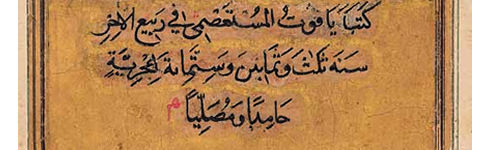 كتبه ياقوت المستعصمي في ربيع الاخر
سنة ثلث وثمانين وستمائة الهجرية
حامدا ومصليا
م